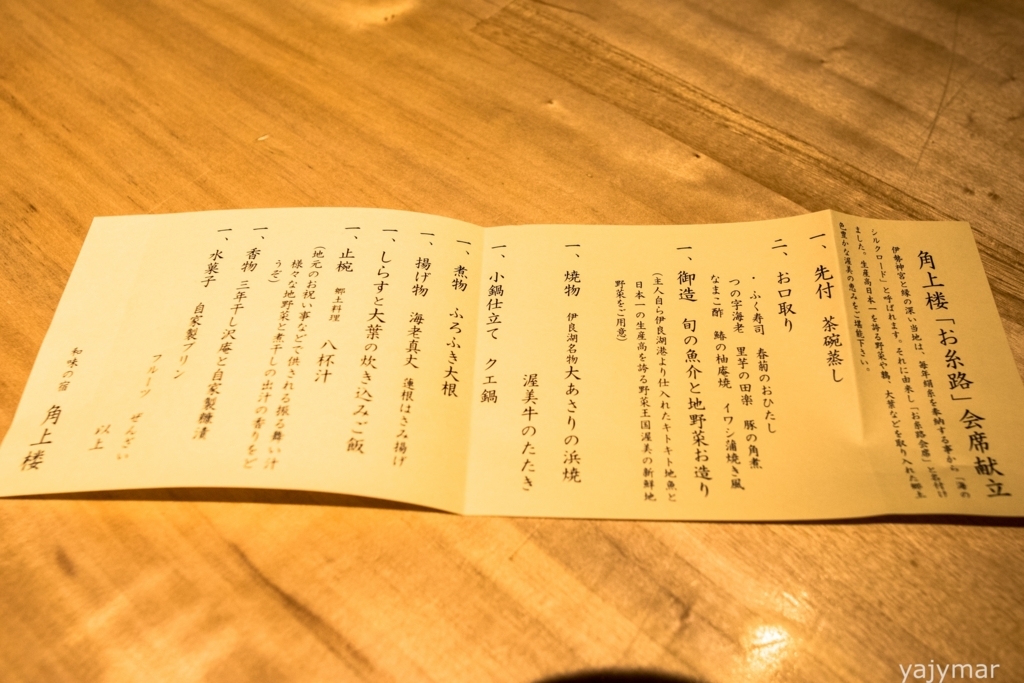 角上楼「お糸路」会席献立
伊勢神宮と縁の深い当地は、毎年絹糸を奉納する事から「海の
シルクロード」と呼ばれます。それに由来し「お糸路会席」と名付け
ました。生産高日本一を誇る野菜や鶉、大葉などを取り入れた郷土
色豊かな渥美の恵みをご堪能下さい。
一、先付 茶碗蒸し
二、お口取り
・ふぐ寿司 春菊のおひたし
つの字海老 里芋の田楽 豚の角煮
なまこ酢 鰆の柚庵焼 イワシ蒲焼き風
一、御造 旬の魚介と地野菜お造り
(主人自ら伊良湖港より仕入れたキトキト地魚と
日本一の生産高を誇る野菜王国渥美の新鮮地
野菜をご用意)
一、焼物 伊良湖名物大あさりの浜焼
渥美牛のたたき
一、小鍋仕立て クエ鍋
一、煮物 ふろふき大根
一、揚げ物 海老真丈 蓮根はさみ揚げ
一、しらすと大葉の炊き込みご飯
一、止椀 郷土料理 八杯汁
(地元のお祝い事などで供される振る舞い汁
様々な地野菜と煮干しの出汁の香りをど
うぞ)
一、香物 三年干し沢庵と自家製糠漬
一、水菓子 自家製プリン
フルーツ ぜんざい
以上
和味の宿 角上楼
yajymar